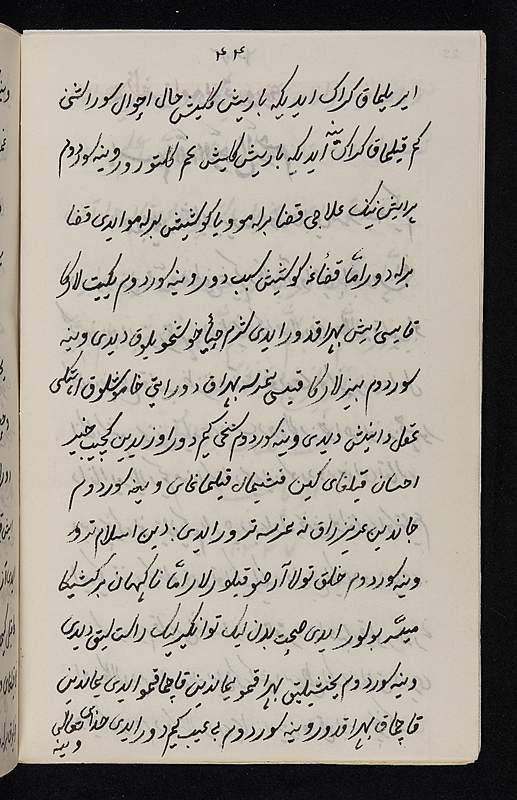 ۴۴
ایر پلماق کراک ایدیکه باریش کلیش حال احوال سوراشنی
کم قیلماق کراک ینه ایدیکه باریش کلیش غم کلتورور وینه سوردوم
بر ایش نیک علاجی قضا برله مو ویا کوشیش برله مو ایدی قضا
برله دور امّا قضاغه کوشیش سبب دور وینه سوردوم یکیت لارکا
قایسی ایش بهراقدور ایدی شرم حیا خوشخویلوق دیدی وینه
سوردوم بیزلارکا قیسی نمرسه بهراق دور ایتی خاموشلوق
عقل دانیش دیدی وینه سوردوم سخی کیم دور اوزیدین
احسان قیلغای کین فشیمان قیلماغای وینه سوردوم
جاندین عزیزراق نه نمرسه ترور ایدی دین اسلام ترور
وینه سوردوم خلق تولا آرضو قیلورلار امّا ناکهان هر کشیکا
میسّر بولور ایدی صحت بدن لیک توانکیرلیک راست لیق دیدی
وینه سوردوم یخشیلیق بهراقمو یماندین قاچماقمو ایدی یماندین
قاچماق بهراقدور وینه سوردوم بی عیب کیم دور ایدی خدای تعالی
وینه